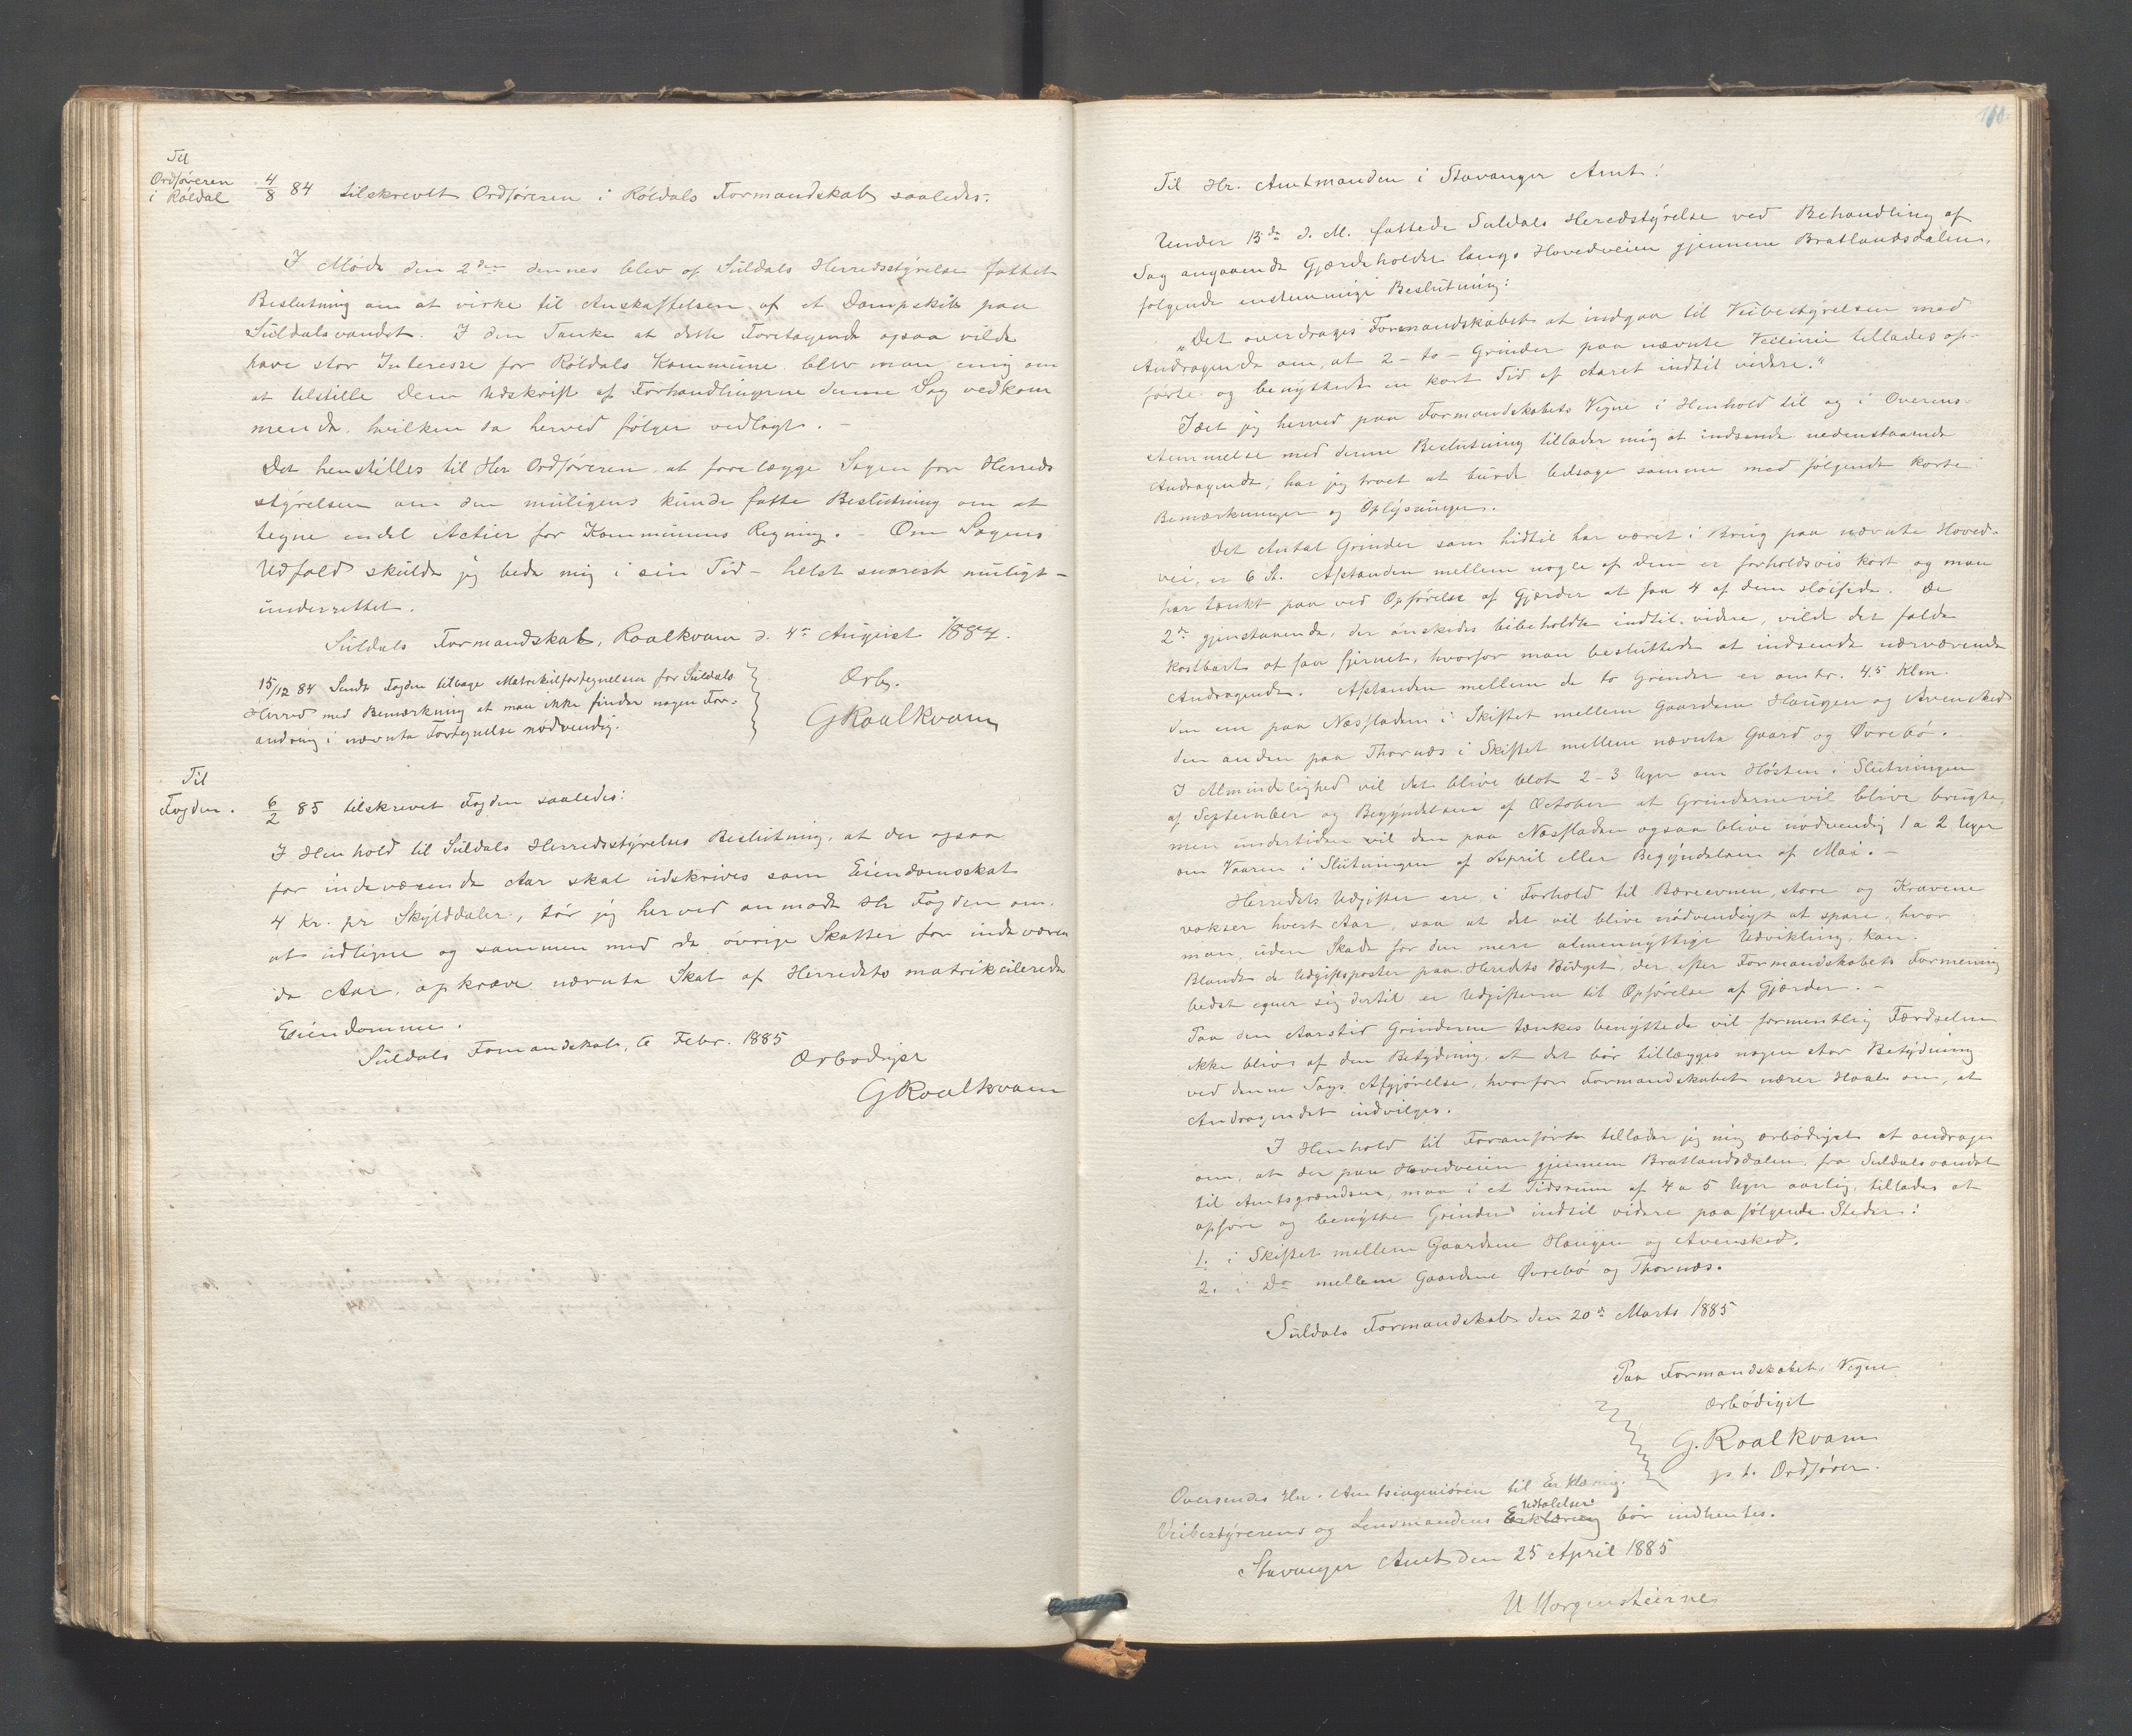 Til
Ordføreren
i Røldal
4/8 84 tilskrevet Ordføreren i Røldals Formandskab saaledes:
I Møde den 2den dennes blev af Suldals Herredsstyrelse fattet
Beslutning om at virke til Anskaffelsen af et Dampskib paa
Suldalsvandet. I den Tanke at dette Foretagende ogsaa vilde
have stor Interesse for Røldals Kommune blev man enig om
at tilstille Dem Udskrift af Forhandlingerne denne Sag vedkom
mende, hvilken da herved følger vedlagt. -
Det henstilles til Her Ordføreren at forelægge Sagen for Herreds
styrelsen om den muligens kunde fatte Beslutning om at
tegne endel Actier for Kommunens Regning. - Om Sagens
Udfald skulde jeg bede mig i sin Tid - helst snarest muligt -
underrettet.
Suldals Formandskab, Roalkvam d. 4de August 1884.
Ærb.
GRoalkvam
15/12 84 Sendt Fogden tilbage Matrikulfortegnelsen for Suldals
Herred med Bemærkning at man ikke finder nogen For-
andring i nævnte Fortegnelse nødvendig.
Til
Fogden.
6/2 85 tilskrevet Fogden saaledes:
I Henhold til Suldals Herredsstyrelses Beslutning, at der ogsaa
for indeværende Aar skal udskrives som Eiendomsskat
4 Kr. pr Skylddaler, tør jeg herved anmode Hr Fogden om
at udligne og sammen med de øvrige Skatter for indeværen
de Aar, opkræve nævnte Skat af Herredets matrikulerede
Eiendomme.
Suldals Fomandskab, 6 Febr. 1885
Ærbødigst
GRoalkvam
Til Hr. Amtmanden i Stavanger Amt!
Under 13de d. M. fattede Suldals Heredstyrelse ved Behandling af
Sag angaaende Gjærdeholdet langs Hovedveien gjennem Bratlandsdalen,
følgende enstemmige Beslutning:
"Det overdrages Formandskabet at indgaa til Veibestyrelsen med
Andragende om, at 2 - to - Grinder paa nævnte Veilinie tillades op-
førte og benyttede en kort Tid af Aaret indtil videre."
Idet jeg herved paa Formandskabets Vegne i Henhold til og i Overens-
stemmelse med denne Beslutning tillader mig at indsende nedenstaaende
Andragende, har jeg troet at burde ledsage samme med følgende korte
Bemærkninger og Oplysninger.
Det Antal Grinder som hidtil har været i Brug paa nævnte Hoved-
vei, er 6 St. Afstanden mellem nogle af dem er forholdsvis kort og man
har tænkt paa ved Opførelse af Gjærder at faa 4 af dem sløifede. De
2de gjenstaaende, der ønskedes bibeholdte indtil videre, vilde det falde
kostbart at faa fjernet, hvorfor man besluttede at indsende nærværende
Andragende. Afstanden mellem de to Grinder er omtr. 4,5 Klm.
den ene paa Næsfladen i Skiftet mellem Gaardene Haugen og Avensked
den anden paa Thornæs i Skiftet mellem nævnte Gaard og Øvrebø.
I Almindelighed vil det blive blot 2-3 Uger om Høsten i Slutningen
af September og Begyndelsen af October at Grinderne vil blive brugte,
men undertiden vil den paa Næsfladen ogsaa blive nødvendig 1 a 2 Uger
om Vaaren i Slutningen af April eller Begyndelsen af Mai. -
Herredets Udgifter ere, i Forhold til Bæreevnen, store og Kravene
vokser hvert Aar, saa at det vil blive nødvendigt at spare, hvor
man, uden Skade for den mere almennyttige Udvikling, kan.
Blandt de Udgiftsposter paa Heredets Budget, der efter Formandskabets Formening
bedst egner sig dertil er Udgifterne til Opførelse af Gjærder. -
Paa den Aarstid Grinderne tænkes benyttede vil formentlig Færdselen
ikke blive af den Betydning, at det bør tillægges nogen stor Betydning
ved denne Sags Afgjørelse, hvorfor Formandskabet nærer Haab om, at
Andragendet indvilges.
I Henhold til Foranførte tillader jeg mig ærbødigst at andrage
om, at der paa Hovedveien gjennem Bratlandsdalen, fra Suldalsvandet
til Amtsgrændsen, maa i et Tidsrum af 4 a 5 Uger aarlig, tillades at
opføre og benytte Grinder indtil videre paa følgende Steder:
1. i Skiftet mellem Gaardene Haugen og Avensked.
2. i Do mellem Gaardene Øvrebø og Thornæs.
Suldals Formandskab den 20de Marts 1885
Paa Formandskabets Vegne
ærbødigst
G. Roalkvam
p. t. Ordfører.
Oversendes Hr. Amtsingeniøren til Erklæring.
Veibestyrerens og Lensmandens Erklæring Udtalelser bør indhentes.
Stavanger Amt den 25 April 1885
U Morgenstierne